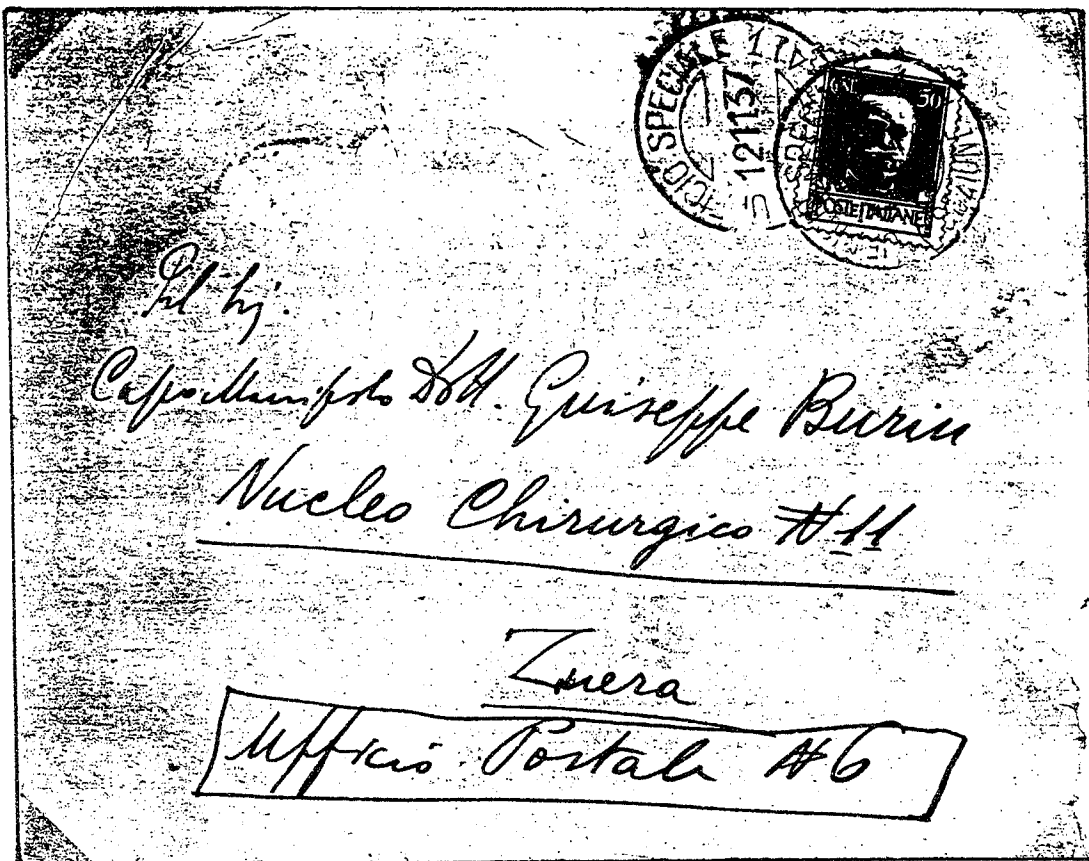 UFFICIO SPECIALE 1
12 11 37
CENT. 50
POSTE ITALIANE
Sig.
Capo Manipolo Dott. Guiseppe Burin
Nucleo Chirurgico N 11
Zuera
Ufficio Postale N 6